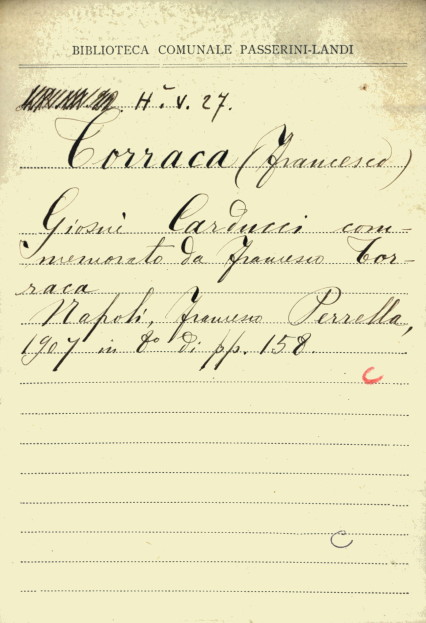 BIBLIOTECA COMUNALE PASSERINI-LANDI
H. V. 27.
Torraca (Francesco)
Giosuè Carducci com-
memorato da Francesco Tor-
raca
Napoli, Francesco Perrella,
1907 in 8° di pp. 158.
C
C